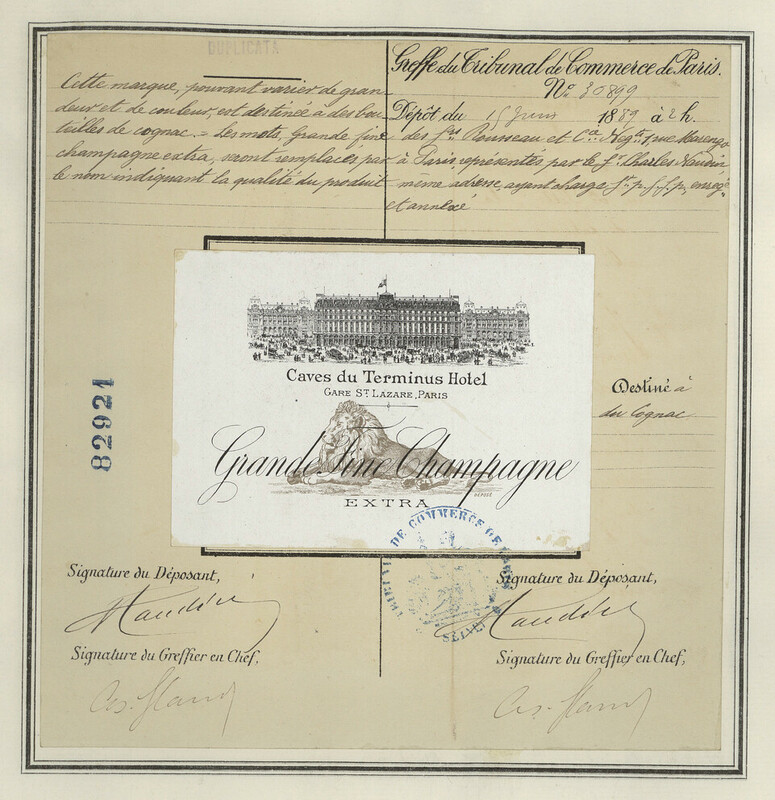 DUPLICATA
Cette marque, pouvant varier de gran
deur et de couleur, est destinée à des bou
teilles de cognac. = Les mots, Grande fine
champagne extra, seront remplacés par
le nom indiquant la qualité du produit
Greffe du Tribunal de Commerce de Paris.
No. 30899
Dépôt du 15 Juin 1889 à 2 h.
des Srs Rousseau et Cie Negts, rue Marengo
à Paris, représentés par le Sr Charles
même adresse, ayant charge enregé
et annexé
Caves du Terminus Hotel
GARE ST LAZARE, PARIS
Grande Fine Champagne
EXTRA
DÉPOSÉ
82921
Destiné à
du Cognac
TRIBUNAL DE COMMERCE DE LA SEINE
Signature du Déposant,
Signature du Greffier en Chef,
Signature du Déposant,
Signature du Greffier en Chef,